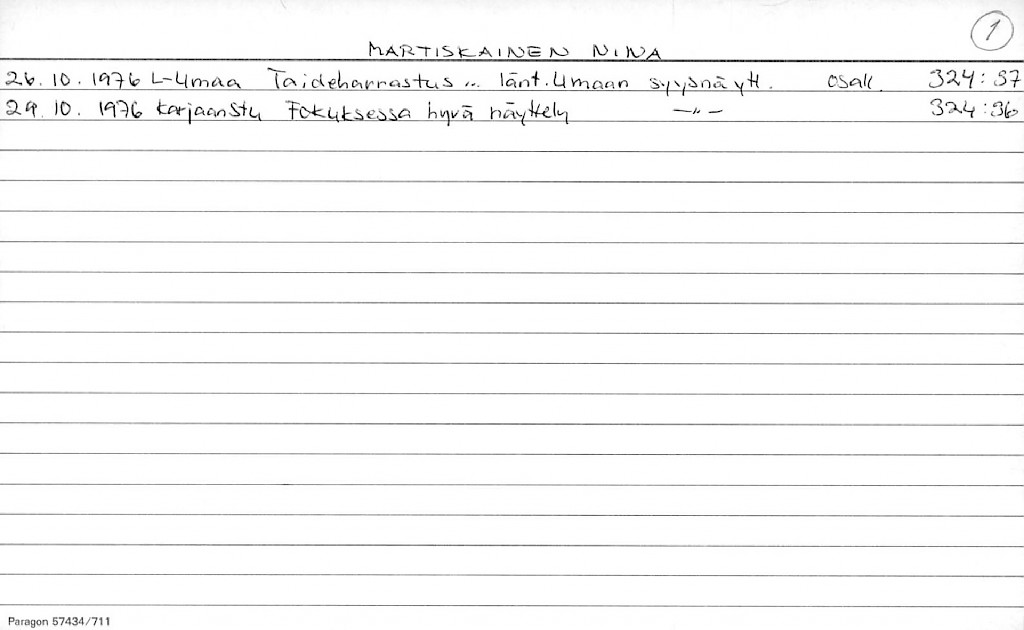 1
MARTISKAINEN NINA
26.10.1976 L-Umaa Taideharrastus... länt.Umaan syysnäytt. osall. 324:37
29.10.1976 KarjaanStu Fokuksessa hyvä näyttely —"— 324:36
Paragon 57434/711